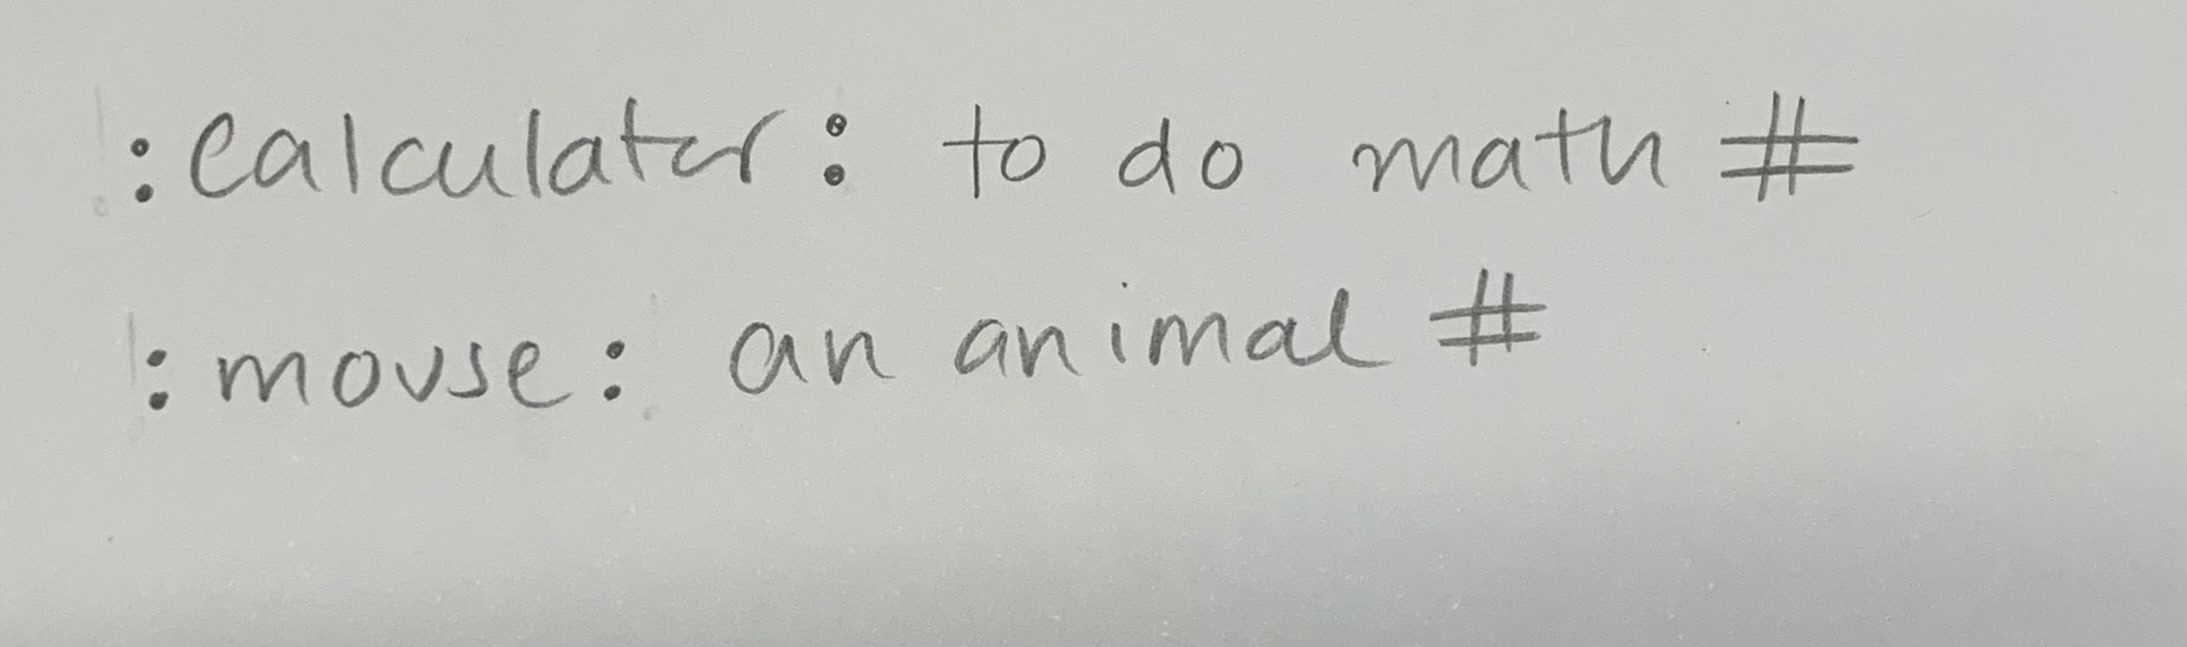 :calculater: to do math #
:mouse: an animal #